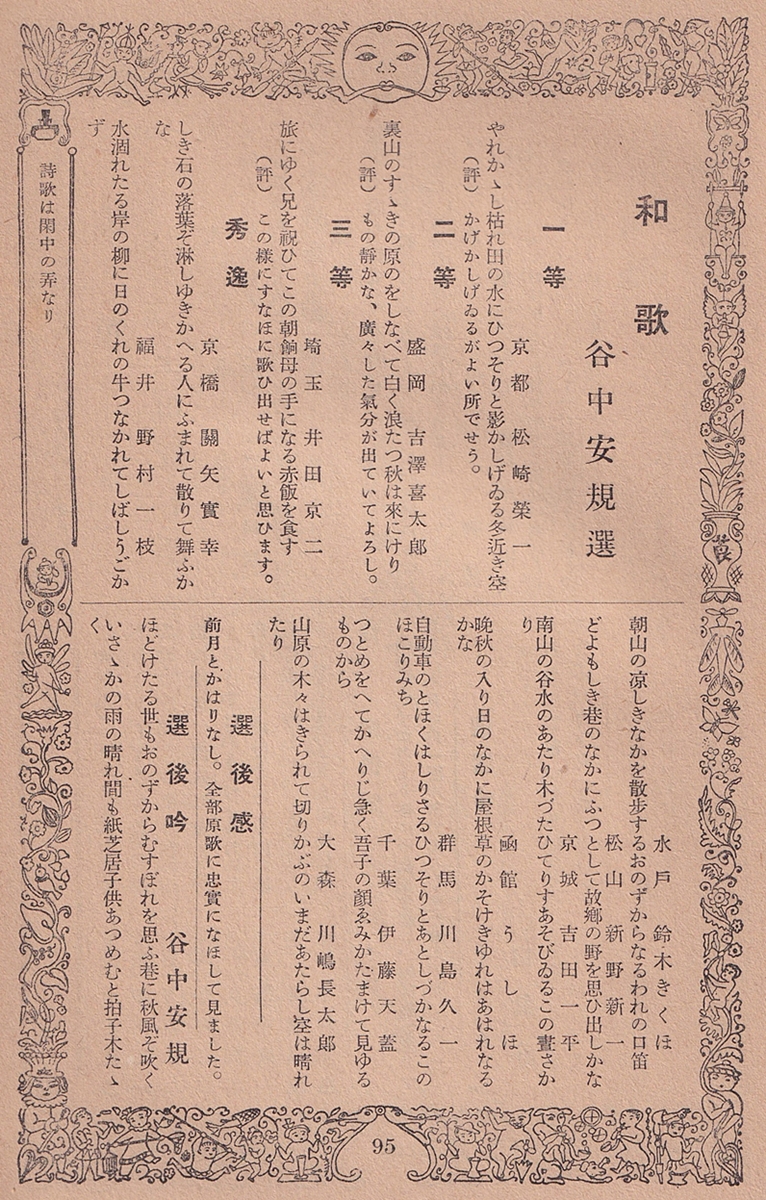 和歌
谷中安規選
一等
京都 松崎榮一
やれかゝし枯れ田の水にひつそりと影かしげゐる冬近き空
(評) かげかしげゐるがよい所でせう。
二等
盛岡 吉澤喜太郎
裏山のすゝきの原のをしなべて白く浪たつ秋は來にけり
(評) もの靜かな、廣々した氣分が出ていてよろし。
三等
埼玉 井田京二
旅にゆく兄を祝ひてこの朝餉母の手になる赤飯を食す
(評) この樣にすなほに歌ひ出せばよいと思ひます。
秀逸
京橋 關矢實幸
しき石の落葉ぞ淋しゆきかへる人にふまれて散りて舞ふか
な
福井 野村一枝
水涸れたる岸の柳に日のくれの牛つなかれてしばしうごか
ず
詩歌は閑中の弄なり
水戶 鈴木きくほ
朝山の凉しきなかを散步するおのずからなるわれの口笛
松山 新野新一
どよもしき巷のなかにふつとして故鄉の野を思ひ出しかな
京城 吉田一平
南山の谷水のあたり木づたひてりすあそびゐるこの晝さか
り
凾館 うしほ
晚秋の入り日のなかに屋根草のかそけきゆれはあはれなる
かな
群馬 川島久一
自動車のとほくはしりさるひつそりとあとしづかなるこの
ほこりみち
千葉 伊藤天蓋
つとめをへてかへりじ急く吾子の顏ゑみかたまけて見ゆる
ものから
大森 川嶋長太郎
山原の木々はきられて切りかぶのいまだあたらし空は晴れ
たり
選後感
前月とかはりなし。全部原歌に忠實になほして見ました。
選後吟
谷中安規
ほどけたる世もおのずからむすぼれを思ふ巷に秋風ぞ吹く
いさゝかの雨の晴れ間も紙芝居子供あつめむと拍子木たゝ
く
95